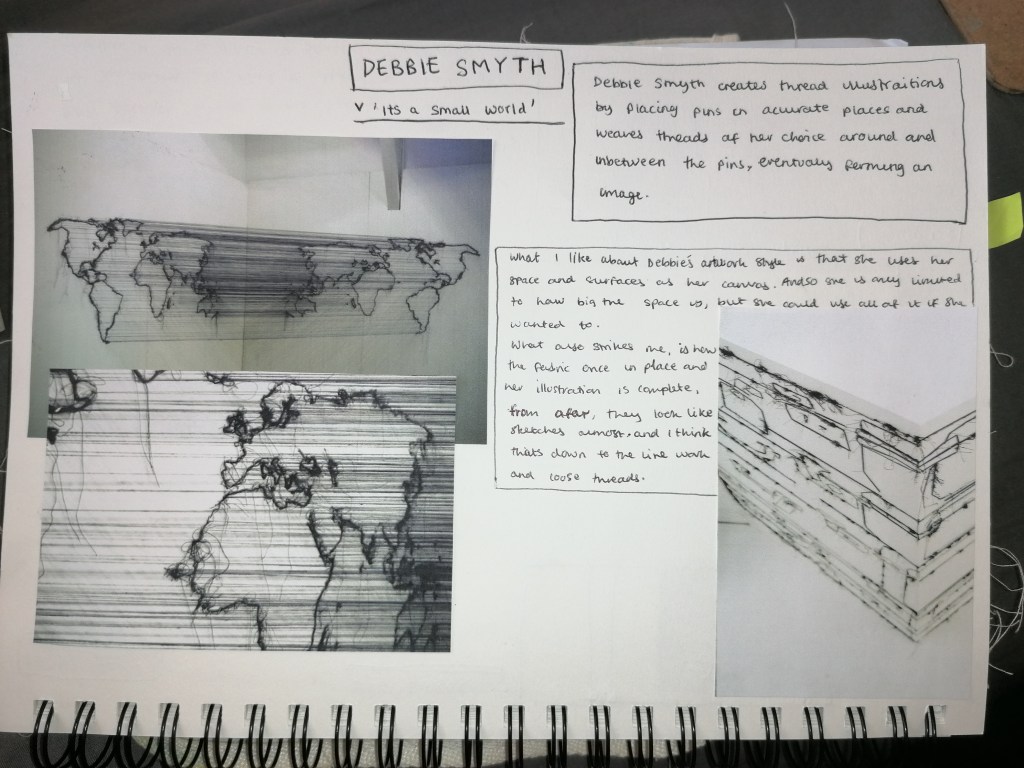 DEBBIE SMYTH
v 'Its a small world'
Debbie Smyth creates thread illustraitions
by placing pins in accurate places and
weaves threads of her choice around and
inbetween the pins, eventually forming an
image.
What I like about Debbie's artwork style is that she uses her
space and surfaces as her canvas. And so she is only limited
to how big the space is, but she could use all of it if she
wanted to.
What also strikes me, is how
the fabric once in place and
her illustration is complete,
from afar, they look like
sketches almost, and I think
thats down to the line work
and loose threads.